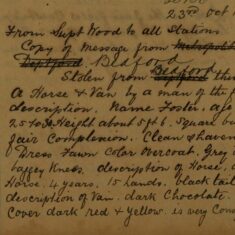 23rd Oct
From Supt Wood to all Stations
Copy of message from Metropolit
Deptford Bedford
Stolen from Bedford this
A Horse & Van by a man of the f
description. Name Foster, age
25 to 30. Height about 5 ft 6. Square bu
fair Complexion. Clean shaven
Dress Fawn Color overcoat. Grey
baggey Knees. description of Horse,
Horse. 4 years. 15 hands. black tail
description of Van. dark Chocolate.
Cover dark red & yellow. is very Cons